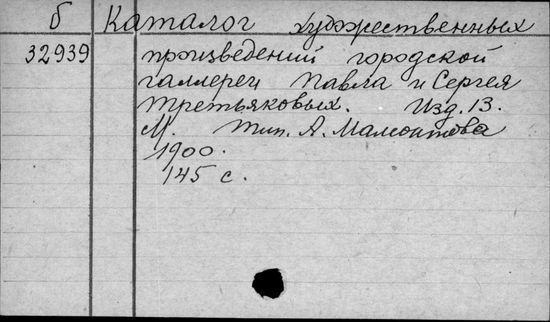 б Каталог художественных
32939 произведений городской
галлереи Павла и Сергея
Третьяковых. Изд. 13.
М. Тип. А. Мамонтова
1900.
145 с.